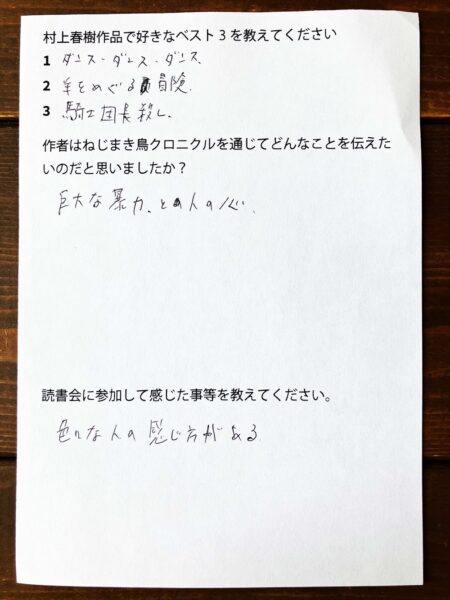 村上春樹作品で好きなベスト3を教えてください
1 ダンス・ダンス・ダンス
2 羊をめぐる冒険.
3 騎士団長殺し.
作者はねじまき鳥クロニクルを通じてどんなことを伝えた
いのだと思いましたか？
巨大な暴力、との人の心.
読書会に参加して感じた事等を教えてください。
色々な人の感じ方がある